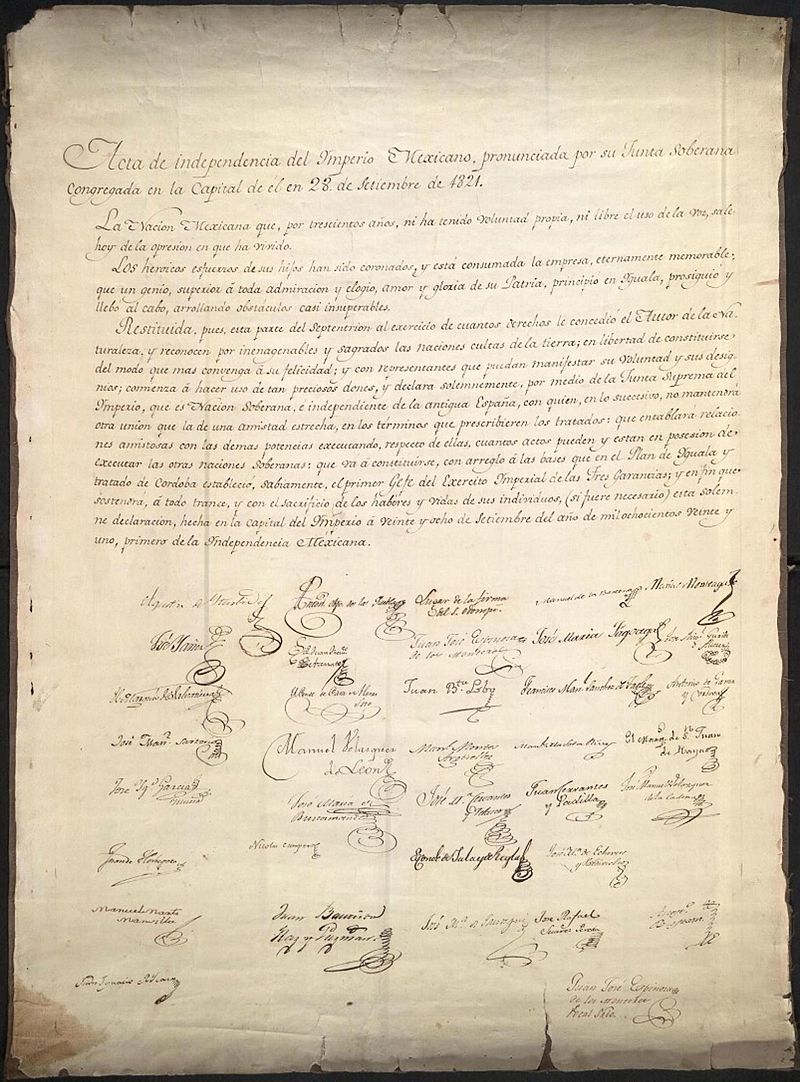 Acta de independencia del Imperio Mexicano, pronunciada por su Junta Soberana
Congregada en la Capital de él en 28 de Setiembre de 1821.
La Nacion Mexicana que, por trescientos años, ni ha tenido voluntad propia, ni libre el uso de la voz, sale
hoy de la opresion en que ha vivido.
Los heroicos esfuerzos de sus hijos han sido coronados, y está consumada la empresa, eternamente memorable,
que un genio, superior á toda admiracion y elogio, amor y gloria de su Patria, principió en Iguala, prosiguió y
llebó al cabo, arrollando obstáculos casi insuperables.
Restituida, pues, esta parte del Septentrion al exercicio de cuantos derechos le concedió el Autor de la Na-
turaleza, y reconocen por inenagenables y sagrados las naciones cultas de la tierra; en libertad de constituirse
del modo que mas convenga á su felicidad; y con representantes que puedan manifestar su voluntad y sus desig-
nios; comienza á hacer uso de tan preciosos dones, y declara solemnemente, por medio de la Junta Suprema del
Imperio, que es Nacion Soberana, é independiente de la antigua España, con quien, en lo succesivo, no mantendrá
otra union que la de una amistad estrecha, en los términos que prescribieren los tratados: que entablará relacio-
nes amistosas con las demas potencias executando, respecto de ellas, cuantos actos pueden y estan en posesion de
executar las otras naciones Soberanas: que va á constituirse, con arreglo á las bases que en el Plan de Iguala y
tratado de Cordoba estableció, sabiamente, el primer Gefe del Exercito Imperial de las Tres Garantias; y en fin que
sostendrá, á todo trance, y con el sacrificio de los haberes y vidas de sus individuos, (si fuere necesario) esta solem-
ne declaracion, hecha en la capital del Imperio á veinte y ocho de Setiembre del año de mil ochocientos veinte y
uno, primero de la Independencia Mexicana.
Agustin de Iturbide
Lugar de la firma
Manuel de la Barcena
Matias Monteagudo
Juan José Espinosa
de los Monteros
José Maria Fagoaga
Juan Bta. Lobo
Francisco Man. Sanchez de Tagle
Antonio de Gama
y Cordova
José Man. Sartorio
Manuel Velazquez
de Leon
Man. Montes
Arguelles
El Marq. de S. Juan
de Rayas
José Ign. Garcia
José Maria de
Bustamante
José M. Cervantes
y Velasco
Juan Cervantes
y Padilla
José Manuel Velazquez
de la Cadena
Juan de Horbegoso
Nicolas Campero
El conde de Jala y de Regla
José M. de Echevers
y Valdivielso
Manuel Martz.
Mansilla
Juan Bautista
Raz y Guzman
José M. de Jauregui
José Rafael
Suarez Pereda
Isidro Ignacio de Icaza
Juan José Espinosa
de los Monteros
Vocal Srio.